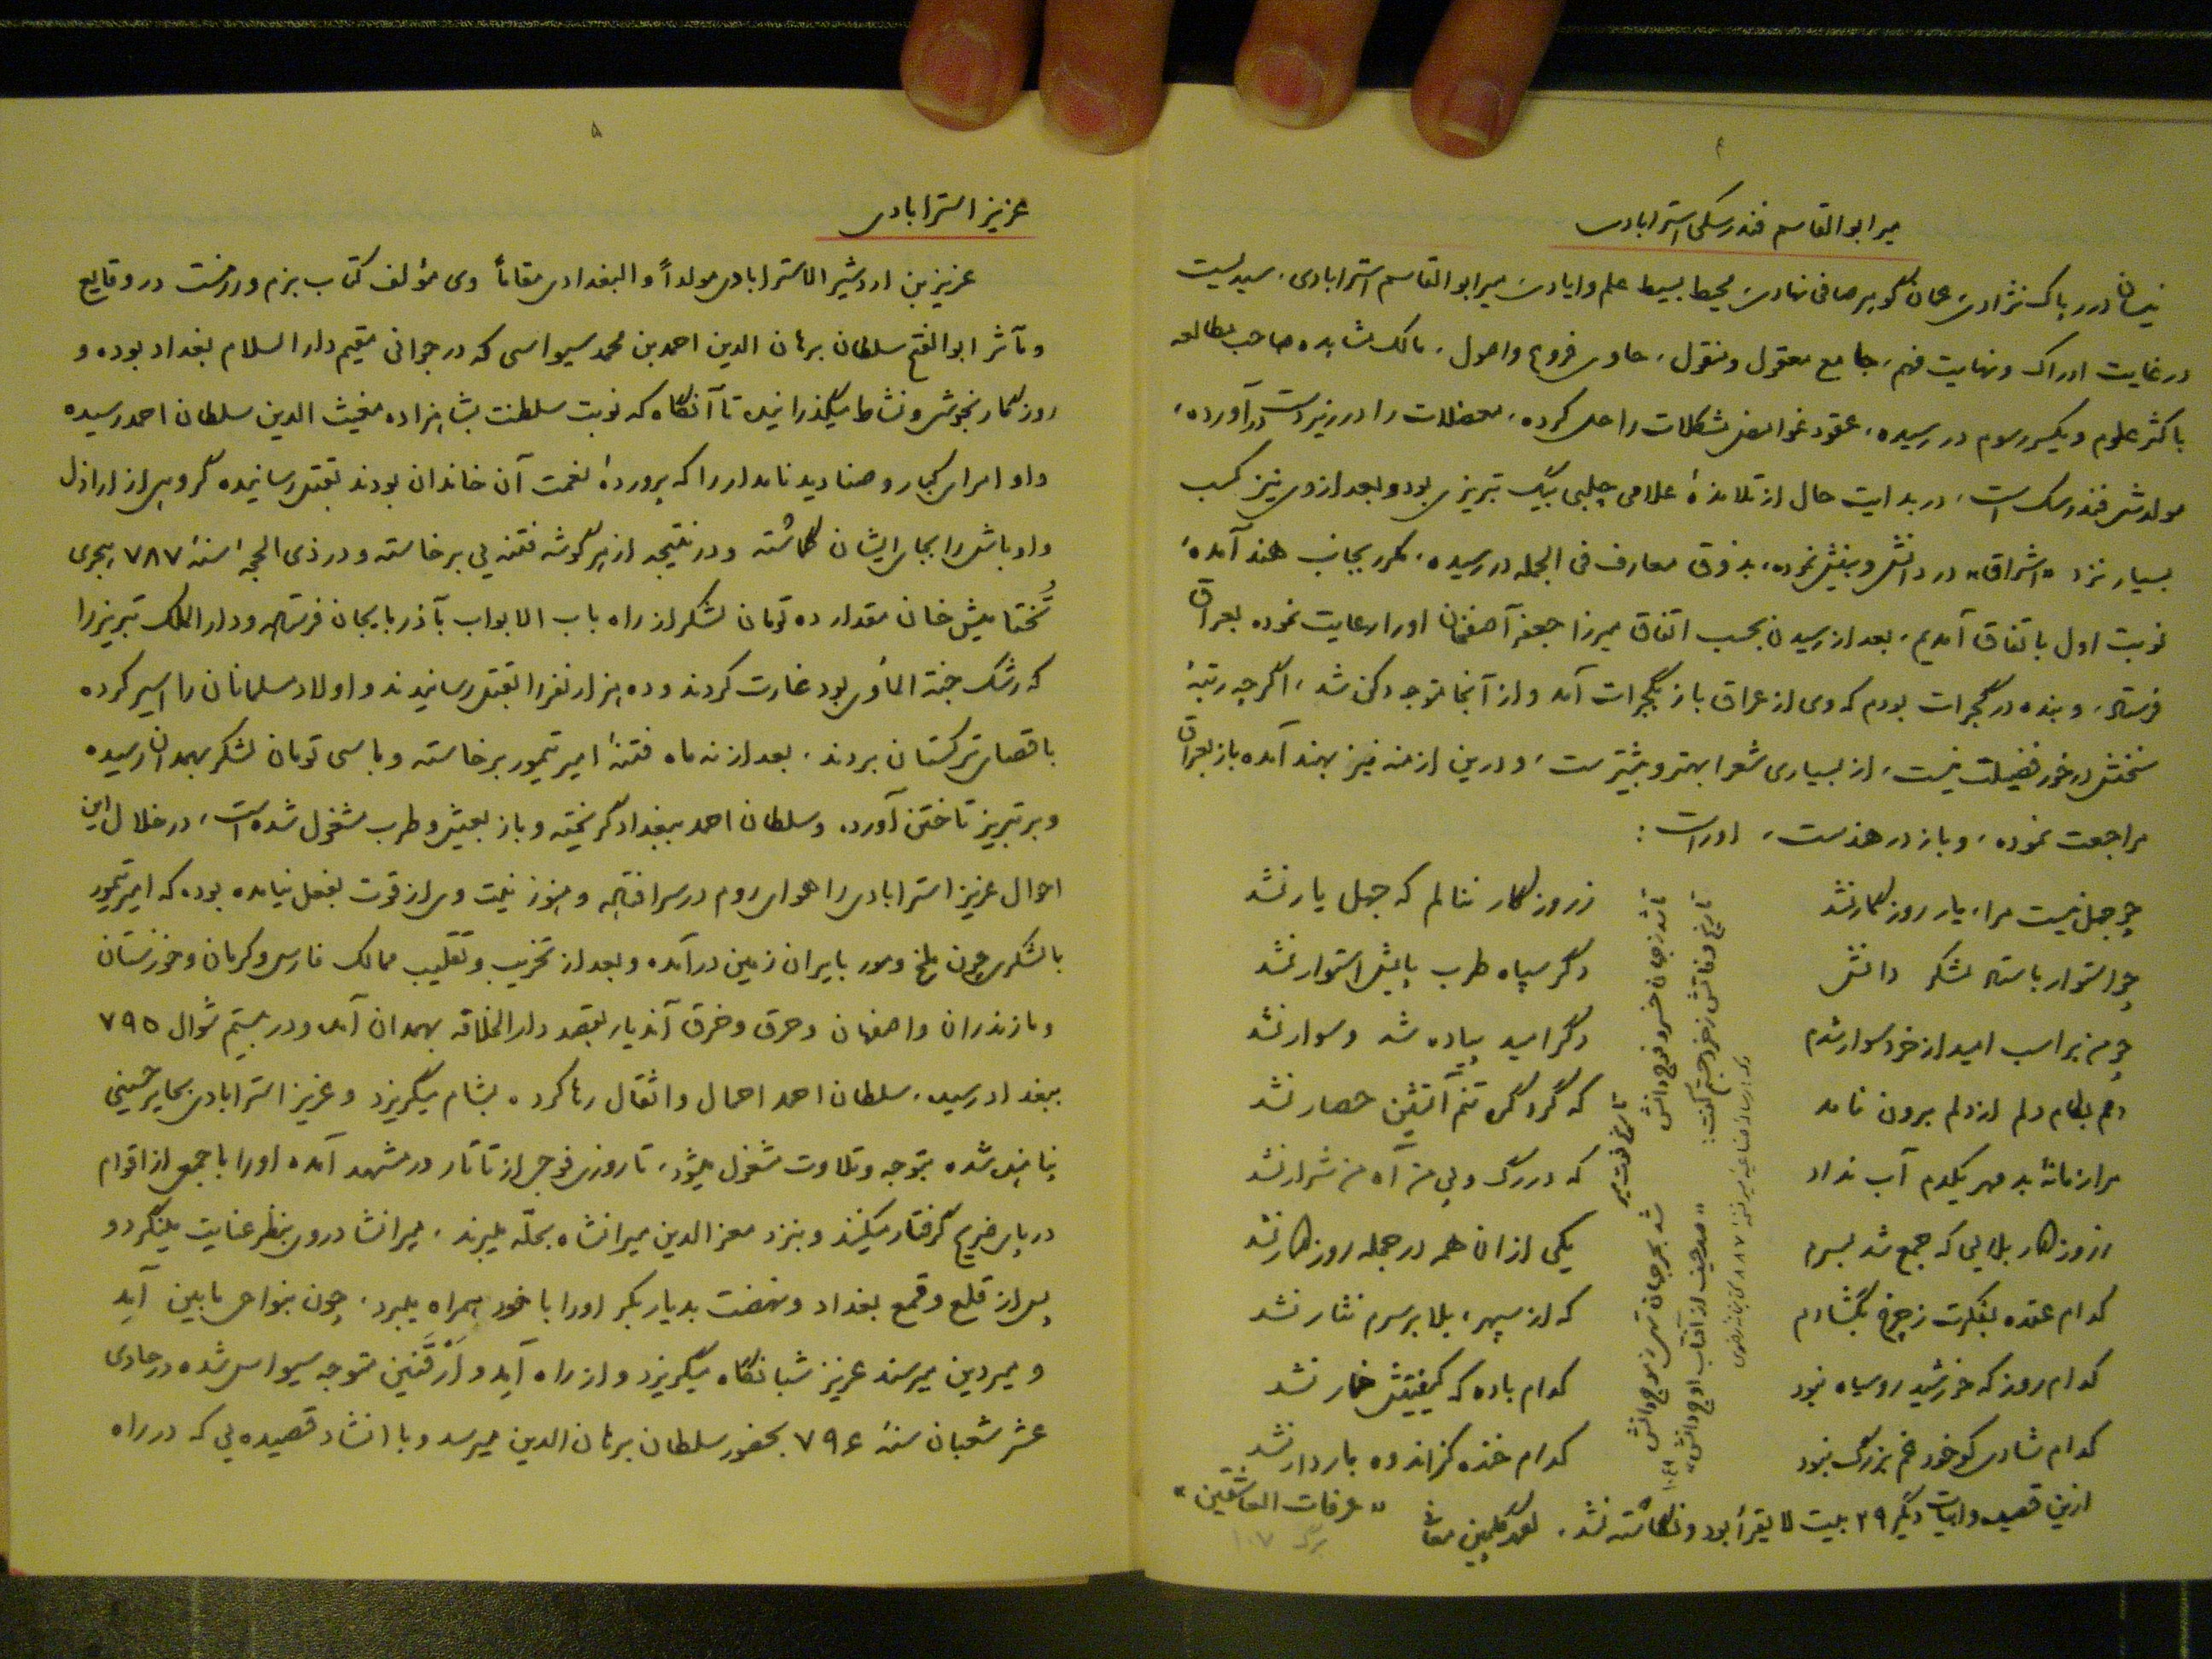 ۴
میر ابوالقاسم فندرسکی استرابادی
نیسان درر پاک نژادی، عمان گوهر صافی نهادی، محیط بسیط علم و ایادی، میر ابوالقاسم استرابادی، سیدیست
در غایت ادراک و نهایت فهم، جامع معقول و منقول، حاوی فروع و اصول، مالک مشاهده صاحب مطالعه
باکثر علوم و یکسر رسوم در رسیده، عقود غوامض مشکلات را حل کرده، معضلات را در زیر دست درآورده،
مولدش فندرسک است، در بدایت حال از تلامذهٔ علامی چلبی بیگ تبریزی بود و بعد ازوی نیز کسب
بسیار نزد «اشراق» در دانش و بینش نموده، بذوق معارف فی الجمله در رسیده، مکرر بجانب هند آمده،
نوبت اول باتفاق آمدیم، بعد از رسیدن بحسب اتفاق میرزا جعفر آصفخان او را رعایت نموده بعراق
فرستاد، و بنده در گجرات بودم که وی از عراق باز بگجرات آمد و از آنجا متوجه دکن شد، اگرچه رتبهٔ
سخنش در خور فضیلت نیست، از بسیاری شعرا بهتر و بیشتر ست، و درین ازمنه نیز بهند آمده باز بعراق
مراجعت نموده، و باز در هندست، اوراست:
چو جهل نیست مرا، یار روزگار نشد ز روزگار ننالم که جهل یار نشد
چو استوار باستاد لشکر دانش دگر سپاه طرب پایش استوار نشد
چو من بر اسب امید از خرد سوار شدم دگر امید پیاده شد و سوار نشد
دم بکام دلم از دلم برون نامد که گرد گرد تنم آتشین حصار نشد
مرا زمانهٔ بد مهر یکدم آب نداد که در رگ و پی من آه من شرار نشد
ز روزگار بلایی که جمع شد بسرم یکی از ان همه در جمله روزگار نشد
کدام عقده بفکرت ز چرخ بگشادم که از سپهر، بلا بر سرم نثار نشد
کدام روز که خورشید رو سیاه نبود کدام باده که کیفیتش خمار نشد
کدام شادی کو خود غم بزرگ نبود کدام خنده کز اندوه باردار نشد
ازین قصیده و ابیات دیگر ۲۹ بیت لا یقرأ بود و نگاشته نشد. گلچین معانی
«عرفات العاشقین»
برگ ۱۰۷
تاریخ فوت میر
تا شد ز جهان خسرو فوج دانش
شد بحر جهان تهی ز موج دانش
تاریخ وفاتش ز خرد جستم گفت:
«صد حیف از آفتاب اوج دانش»
۵
عزیز استرابادی
عزیز بن اردشیر الاسترابادی مولداً و البغدادی مقاماً وی مؤلف کتاب بزم و رزمست در وقایع
و مآثر ابوالفتح سلطان برهان الدین احمد بن محمد سیواسی که در جوانی مقیم دارالسلام بغداد بوده و
روزگار بخوشی و نشاط میگذرانید، تا آنگاه که نوبت سلطنت بشاهزاده مغیث الدین سلطان احمد رسیده
و او امرای کبار و صنادید نامدار را که پروردهٔ نعمت آن خاندان بودند بقتل رسانیده گروهی از اراذل
و اوباش را بجای ایشان گماشته و در نتیجه از هر گوشه فتنه یی برخاسته و در ذی الحجهٔ سنهٔ ۷۸۷ هجری
تُختامیش خان مقدار ده تومان لشکر از راه باب الابواب بآذربایجان فرستاد و دارالملک تبریز را
که رشک جنة المأوی بود غارت کردند و ده هزار نفر را بقتل رسانیدند و اولاد مسلمانان را اسیر کرده
باقصای ترکستان بردند. بعد از نه ماه فتنهٔ امیر تیمور برخاسته و با سی تومان لشکر بهمدان رسیده
و بر تبریز تاختن آورد. و سلطان احمد ببغداد گریخته و باز بعیش و طرب مشغول شده است، در خلال این
احوال عزیز استرابادی را هوای روم در سر افتاد و هنوز نیت وی از قوت بفعل نیامده بوده که امیر تیمور
با لشکری چون ملخ و مور بایران زمین درآمده و بعد از تخریب و تقلیب ممالک فارس و کرمان و خوزستان
و مازندران و اصفهان و حرق و خرق آندیار بقصد دارالخلافه بهمدان آمد و در بیستم شوال ۷۹۵
ببغداد رسید، سلطان احمد احمال و اثقال رها کرده بشام میگریزد و عزیز استرابادی بحایر حسینی
پناهنده شده بتوجه و تلاوت مشغول میشود، تا روزی فوجی از تاتار در مشهد آمده او را با جمعی از اقوام
در پای ضریح گرفتار میکنند و بنزد معزالدین میرانشاه بحلّه میبرند. میرانشاه در وی بنظر عنایت مینگرد و
پس از قلع و قمع بغداد و نهضت بدیار بکر او را با خود همراه میبرد. چون بنواحی مابین آمد
و میردین میرسند عزیز شبانگاه میگریزد و از راه آمد و اَرْقَنین متوجه سیواس شده در حادی
عشر شعبان سنهٔ ۷۹۶ بحضور سلطان برهان الدین میرسد و با انشاد قصیده یی که در راه